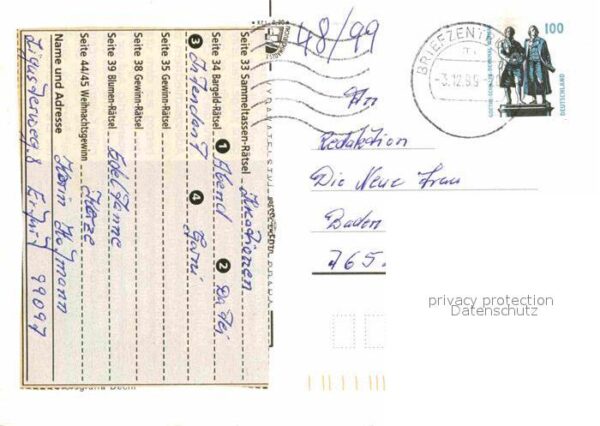 48/99
BRIEFZEN
-3.12.99-
100
DEUTSCHLAND
An
Redaktion
Die Neue Frau
Baden
765
privacy protection
Datenschutz
Seite 33 Sammeltassen-Rätsel
Seite 34 Bargeld-Rätsel 1 Abend 2 Datei
3 Intendant 4 Garni
Seite 35 Gewinn-Rätsel
Seite 38 Gewinn-Rätsel
Seite 39 Blumen-Rätsel Edeltanne
Seite 44/45 Weihnachtsgewinn Kerze
Name und Adresse Karin Hofmann
Ligusterweg 8 Erfurt 99097